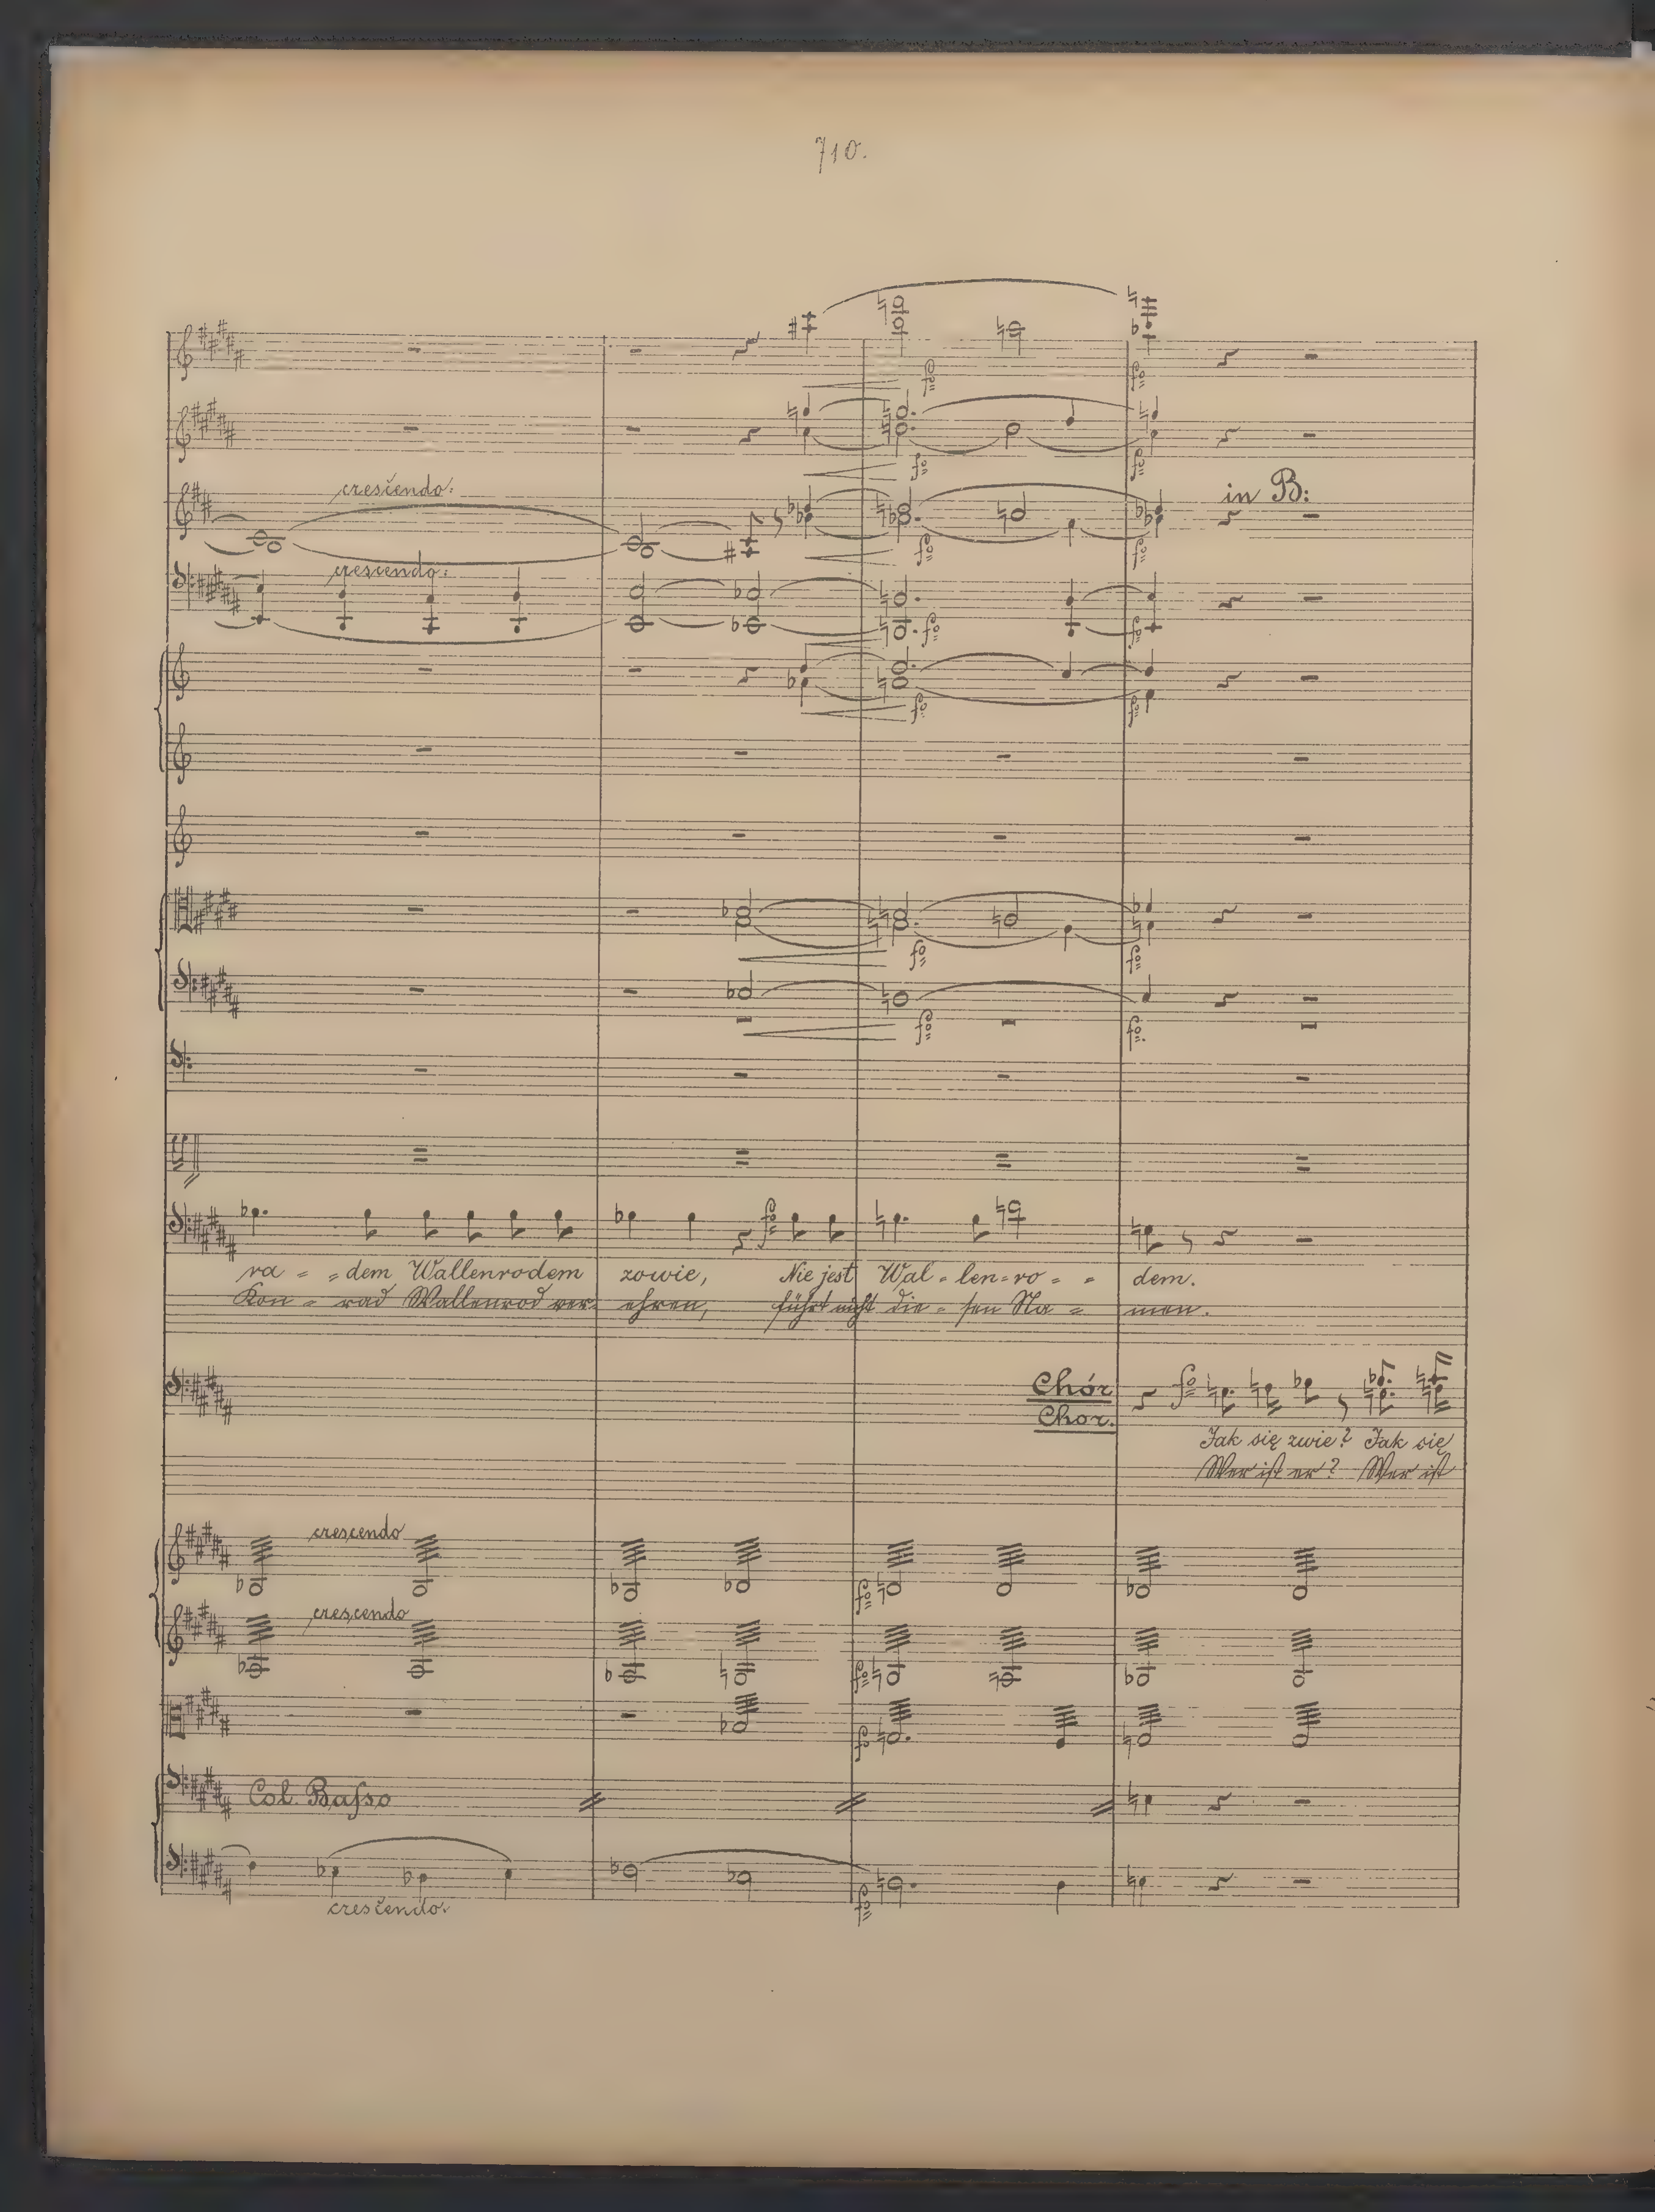 710.
crescendo:
in B:
crescendo:
ra - - dem Wallenrodem zowie, Nie jest Wal - len - ro - - dem.
Kon - rad Wallenrod ver- ehren, führt nicht die - sen Na - men.
Chór
Chor.
Jak się zwie? Jak się
Wer ist er? Wer ist
crescendo
crescendo
Col. Basso
crescendo.